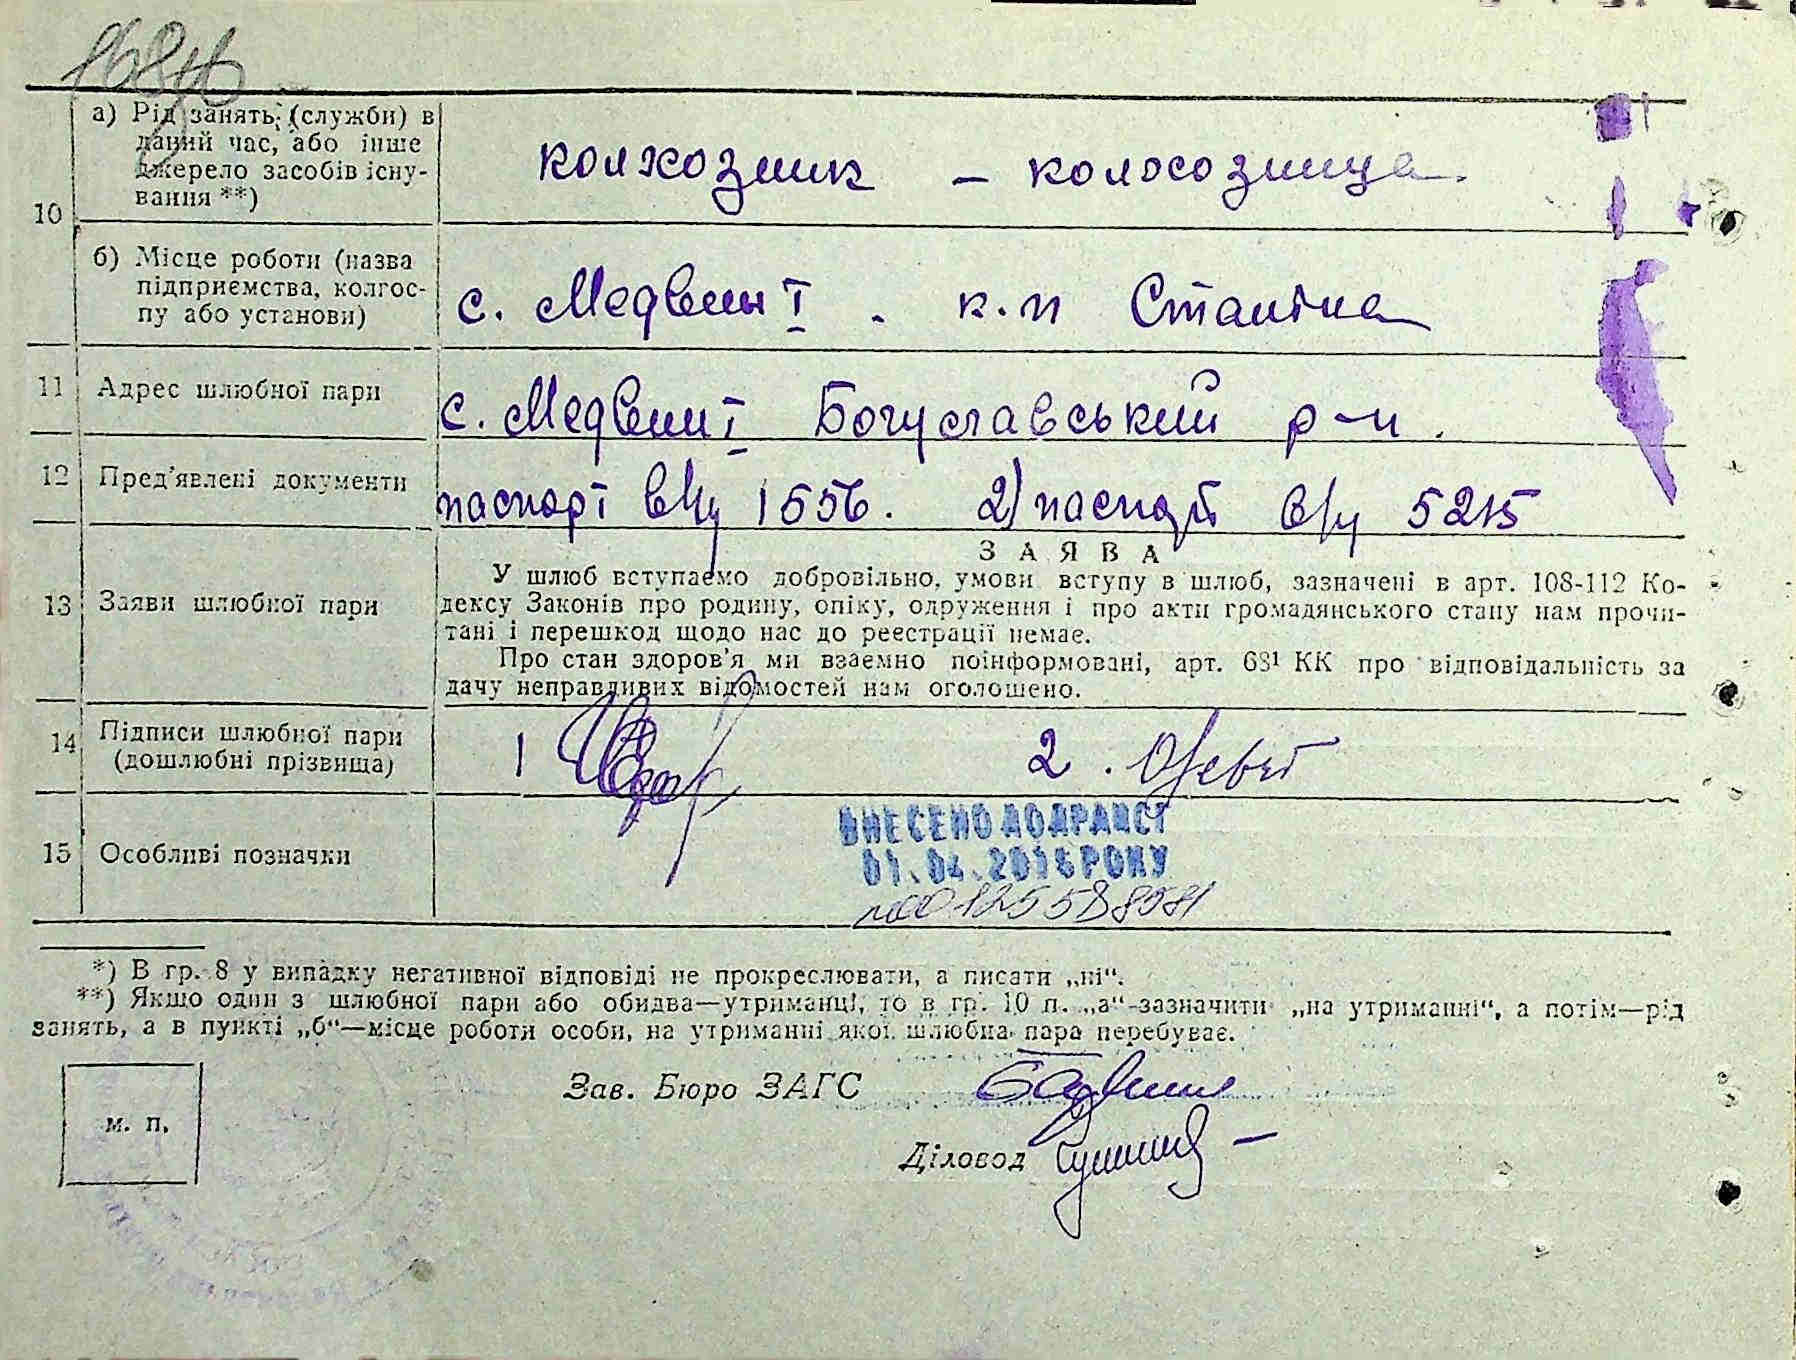 10 а) Рід занять, (служби) в
даний час, або інше
джерело засобів існу-
вання **)
колхозник – колхозница.
б) Місце роботи (назва
підприємства, колгос-
пу або установи)
с. Медвин I. к.и Сталіна
11 Адрес шлюбної пари
с. Медвин I Богуславський р-н.
12 Пред'явлені документи
паспорт 1556. 2) паспорт 5215
13 Заяви шлюбної пари
ЗАЯВА
У шлюб вступаємо добровільно, умови вступу в шлюб, зазначені в арт. 108-112 Ко-
дексу Законів про родину, опіку, одруження і про акти громадянського стану нам прочи-
тані і перешкод щодо нас до реестрації немає.
Про стан здоров'я ми взаємно поінформовані, арт. 68¹ КК про відповідальність за
дачу неправдивих відомостей нам оголошено.
14 Підписи шлюбної пари
(дошлюбні прізвища)
1 2.
15 Особливі позначки
ВНЕСЕНО ДО ДРАЦСГ
01.04.2016 РОКУ
*) В гр. 8 у випадку негативної відповіді не прокреслювати, а писати „ні“.
**) Якшо один з шлюбної пари або обидва—утриманці, то в гр. 10 п. „а“-зазначити „на утриманні“, а потім—рід
занять, а в пункті „б“—місце роботи особи, на утриманні якої шлюбна пара перебуває.
м. п.
Зав. Бюро ЗАГС
Діловод